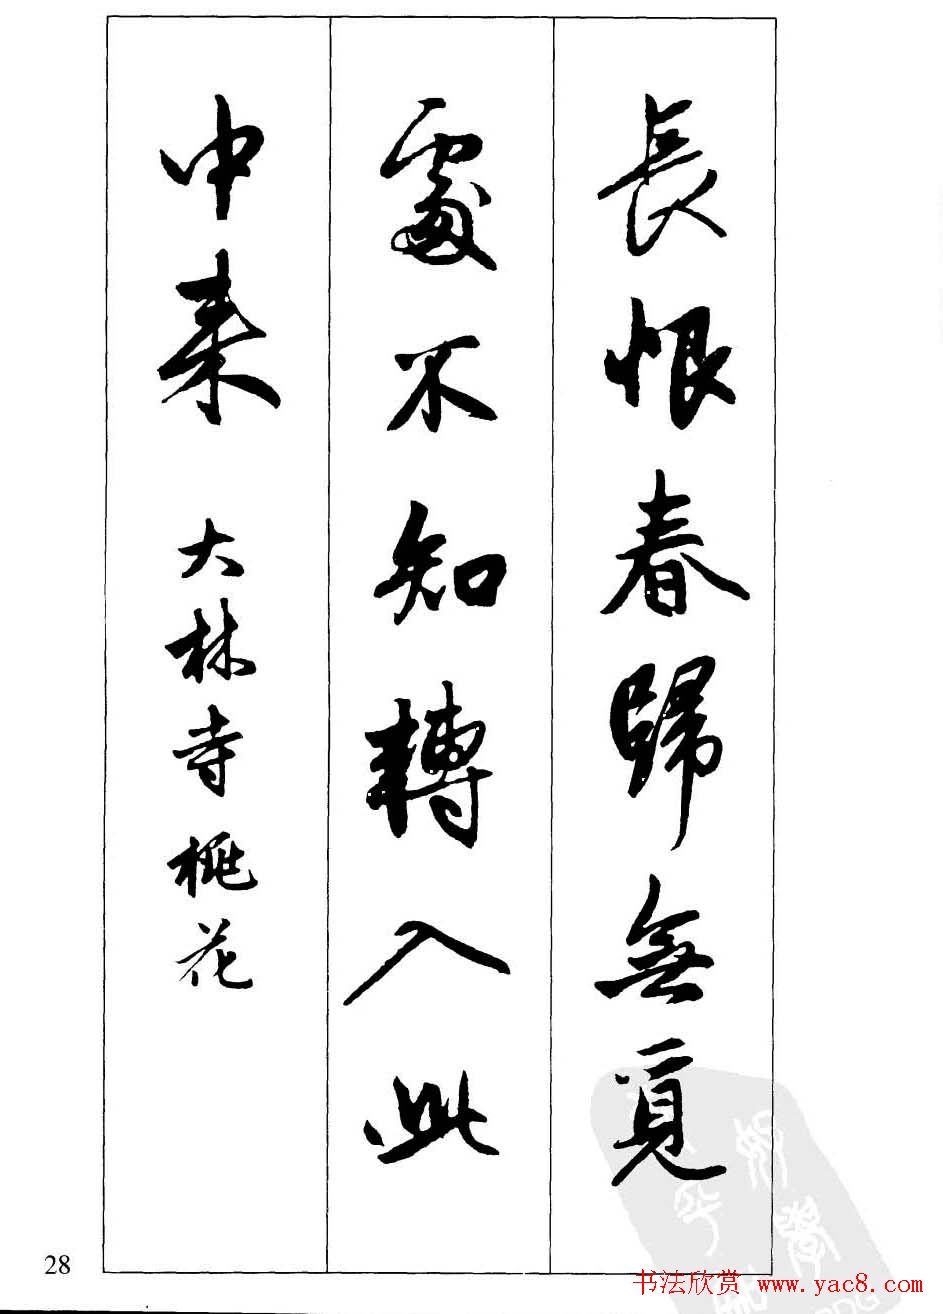 長恨春歸無覓
處不知轉入此
中来 大林寺桃花
28
书法欣赏 www.yac8.com